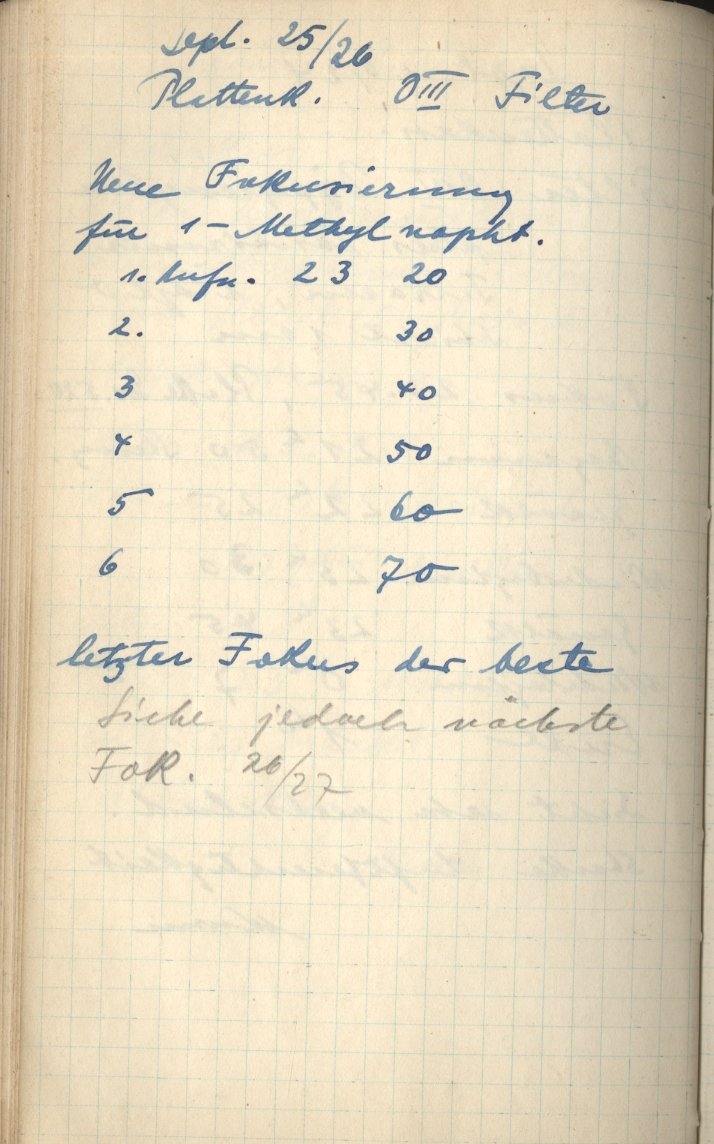 Sept. 25/26
Plattenk. OIII Filter
Neue Fokusierung
für 1-Methylnapht.
1. Aufn. 23 20
2. 30
3 40
4 50
5 60
6 70
letzter Fokus der beste
Siehe jedoch nächste
Fok. 26/27